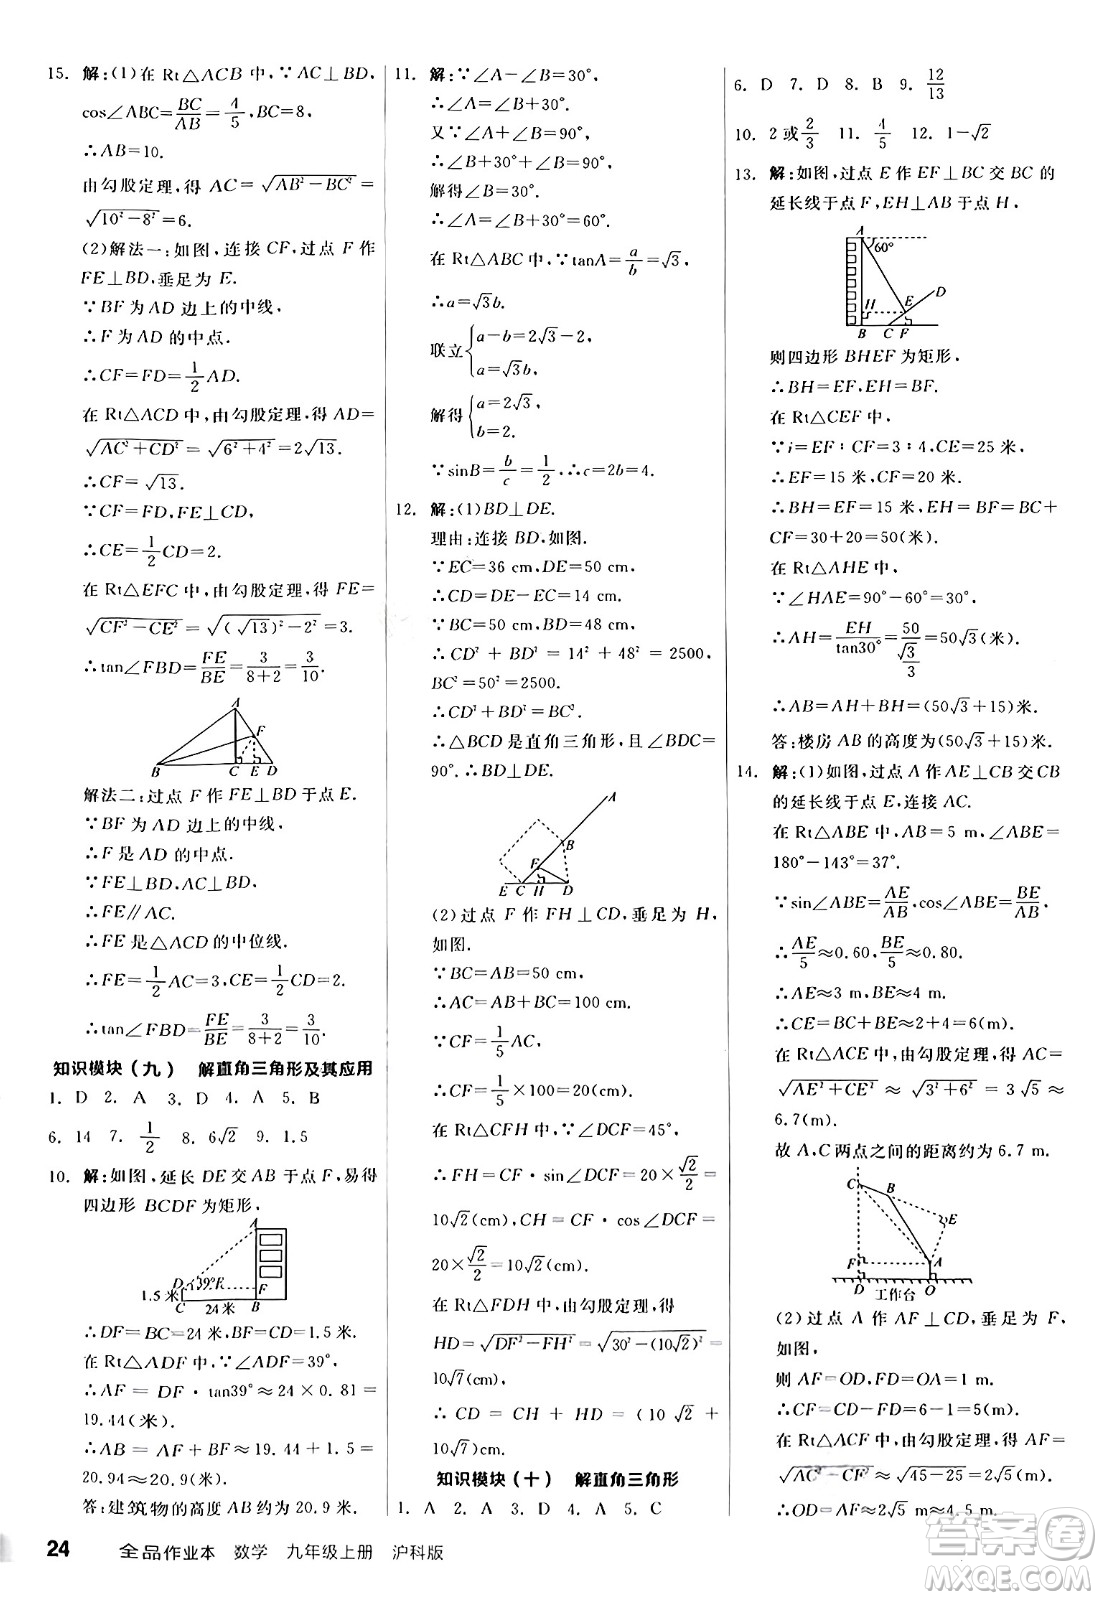 15. 解:(1)在 Rt△ACB 中,∵AC⊥BD,
cos∠ABC=BC/AB=4/5,BC=8,
∴AB=10.
由勾股定理,得 AC=√(AB²-BC²)=
√(10²-8²)=6.
(2)解法一:如图,连接 CF,过点 F 作
FE⊥BD,垂足为 E.
∵BF 为 AD 边上的中线,
∴F 为 AD 的中点.
∴CF=FD=1/2AD.
在 Rt△ACD 中,由勾股定理,得 AD=
√(AC²+CD²)=√(6²+4²)=2√13.
∴CF=√13.
∵CF=FD,FE⊥CD,
∴CE=1/2CD=2.
在 Rt△EFC 中,由勾股定理,得 FE=
√(CF²-CE²)=√((√13)²-2²)=3.
∴tan∠FBD=FE/BE=3/(8+2)=3/10.
A
F
B C E D
解法二:过点 F 作 FE⊥BD 于点 E.
∵BF 为 AD 边上的中线,
∴F 是 AD 的中点.
∵FE⊥BD,AC⊥BD,
∴FE∥AC.
∴FE 是△ACD 的中位线.
∴FE=1/2AC=3,CE=1/2CD=2.
∴tan∠FBD=FE/BE=3/(8+2)=3/10.
知识模块(九) 解直角三角形及其应用
1. D 2. A 3. D 4. A 5. B
6. 14 7. 1/2 8. 6√2 9. 1.5
10. 解:如图,延长 DE 交 AB 于点 F,易得
四边形 BCDF 为矩形,
A
D 39° E F
1.5 米
C 24 米 B
∴DF=BC=24 米,FB=CD=1.5 米.
在 Rt△ADF 中,∵∠ADE=39°,
∴AF=DF·tan39°≈24×0.81=
19.44(米).
∴AB=AF+BF≈19.44+1.5=
20.94≈20.9(米).
答:建筑物的高度 AB 约为 20.9 米.
11. 解:∵∠A-∠B=30°,
∴∠A=∠B+30°.
又∵∠A+∠B=90°,
∴∠B+30°+∠B=90°,
解得∠B=30°.
∴∠A=60°.
在 Rt△ABC 中,∵tanA=a/b=√3,
∴a=√3b.
联立{a-b=2√3-2,
a=√3b,
解得{a=2√3,
b=2.
∵sinB=b/c=1/2,∴c=2b=4.
12. 解:(1)BD⊥DE.
理由:连接 BD,如图.
∵EC=36 cm,DE=50 cm,
∴CD=DE-EC=14 cm.
∵BC=50 cm,BD=48 cm,
∴CD²+BD²=14²+48²=2500,
BC²=50²=2500.
∴CD²+BD²=BC².
∴△BCD 是直角三角形,且∠BDC=
90°.∴BD⊥DE.
A
B
F
E C H D
(2)过点 F 作 FH⊥CD,垂足为 H,
如图.
∵BC=AB=50 cm,
∴AC=AB+BC=100 cm.
∵CF=1/5AC,
∴CF=1/5×100=20(cm).
在 Rt△CFH 中,∵∠DCF=45°,
∴FH=CF·sin∠DCF=20×√2/2=
10√2(cm),CH=CF·cos∠DCF=
20×√2/2=10√2(cm).
在 Rt△FDH 中,由勾股定理,得
HD=√(DF²-FH²)=√(30²-(10√2)²)=
10√7(cm),
∴CD=CH+HD=(10√2+
10√7)cm.
知识模块(十) 解直角三角形
1. A 2. A 3. D 4. A 5. C
6. D 7. D 8. B 9. 12/13
10. 2或2/3 11. 4/5 12. 1-√2
13. 解:如图,过点 E 作 EF⊥BC 交 BC 的
延长线于点 F,EH⊥AB 于点 H,
A
60°
D
H E
B C F
则四边形 BHEF 为矩形,
∴BH=EF,EH=BF.
在 Rt△CEF 中,
∵i=EF∶CF=3∶4,CE=25 米,
∴EF=15 米,CF=20 米.
∴BH=EF=15 米,EH=BF=BC+
CF=30+20=50(米).
在 Rt△AHE 中,
∵∠HAE=90°-60°=30°,
∴AH=EH/tan30°=50/(√3/3)=50√3(米).
∴AB=AH+BH=(50√3+15)米.
答:楼房 AB 的高度为(50√3+15)米.
14. 解:(1)如图,过点 A 作 AE⊥CB 交 CB
的延长线于点 E,连接 AC.
在 Rt△ABE 中,AB=5 m,∠ABE=
180°-143°=37°.
∵sin∠ABE=AE/AB,cos∠ABE=BE/AB,
∴AE/5≈0.60,BE/5≈0.80.
∴AE≈3 m,BE≈4 m.
∴CE=BC+BE≈2+4=6(m).
在 Rt△ACE 中,由勾股定理,得 AC=
√(AE²+CE²)≈√(3²+6²)=3√5≈
6.7(m).
故 A,C 两点之间的距离约为 6.7 m.
C B
E
F A
D O
工作台
(2)过点 A 作 AF⊥CD,垂足为 F,
如图,
则 AF=OD,FD=OA=1 m.
∴CF=CD-FD=6-1=5(m).
在 Rt△ACF 中,由勾股定理,得 AF=
√(AC²-CF²)≈√(45-25)=2√5(m).
∴OD=AF≈2√5≈4.5 m.
24 全品作业本 数学 九年级上册 沪科版
答案卷
MXQE.COM